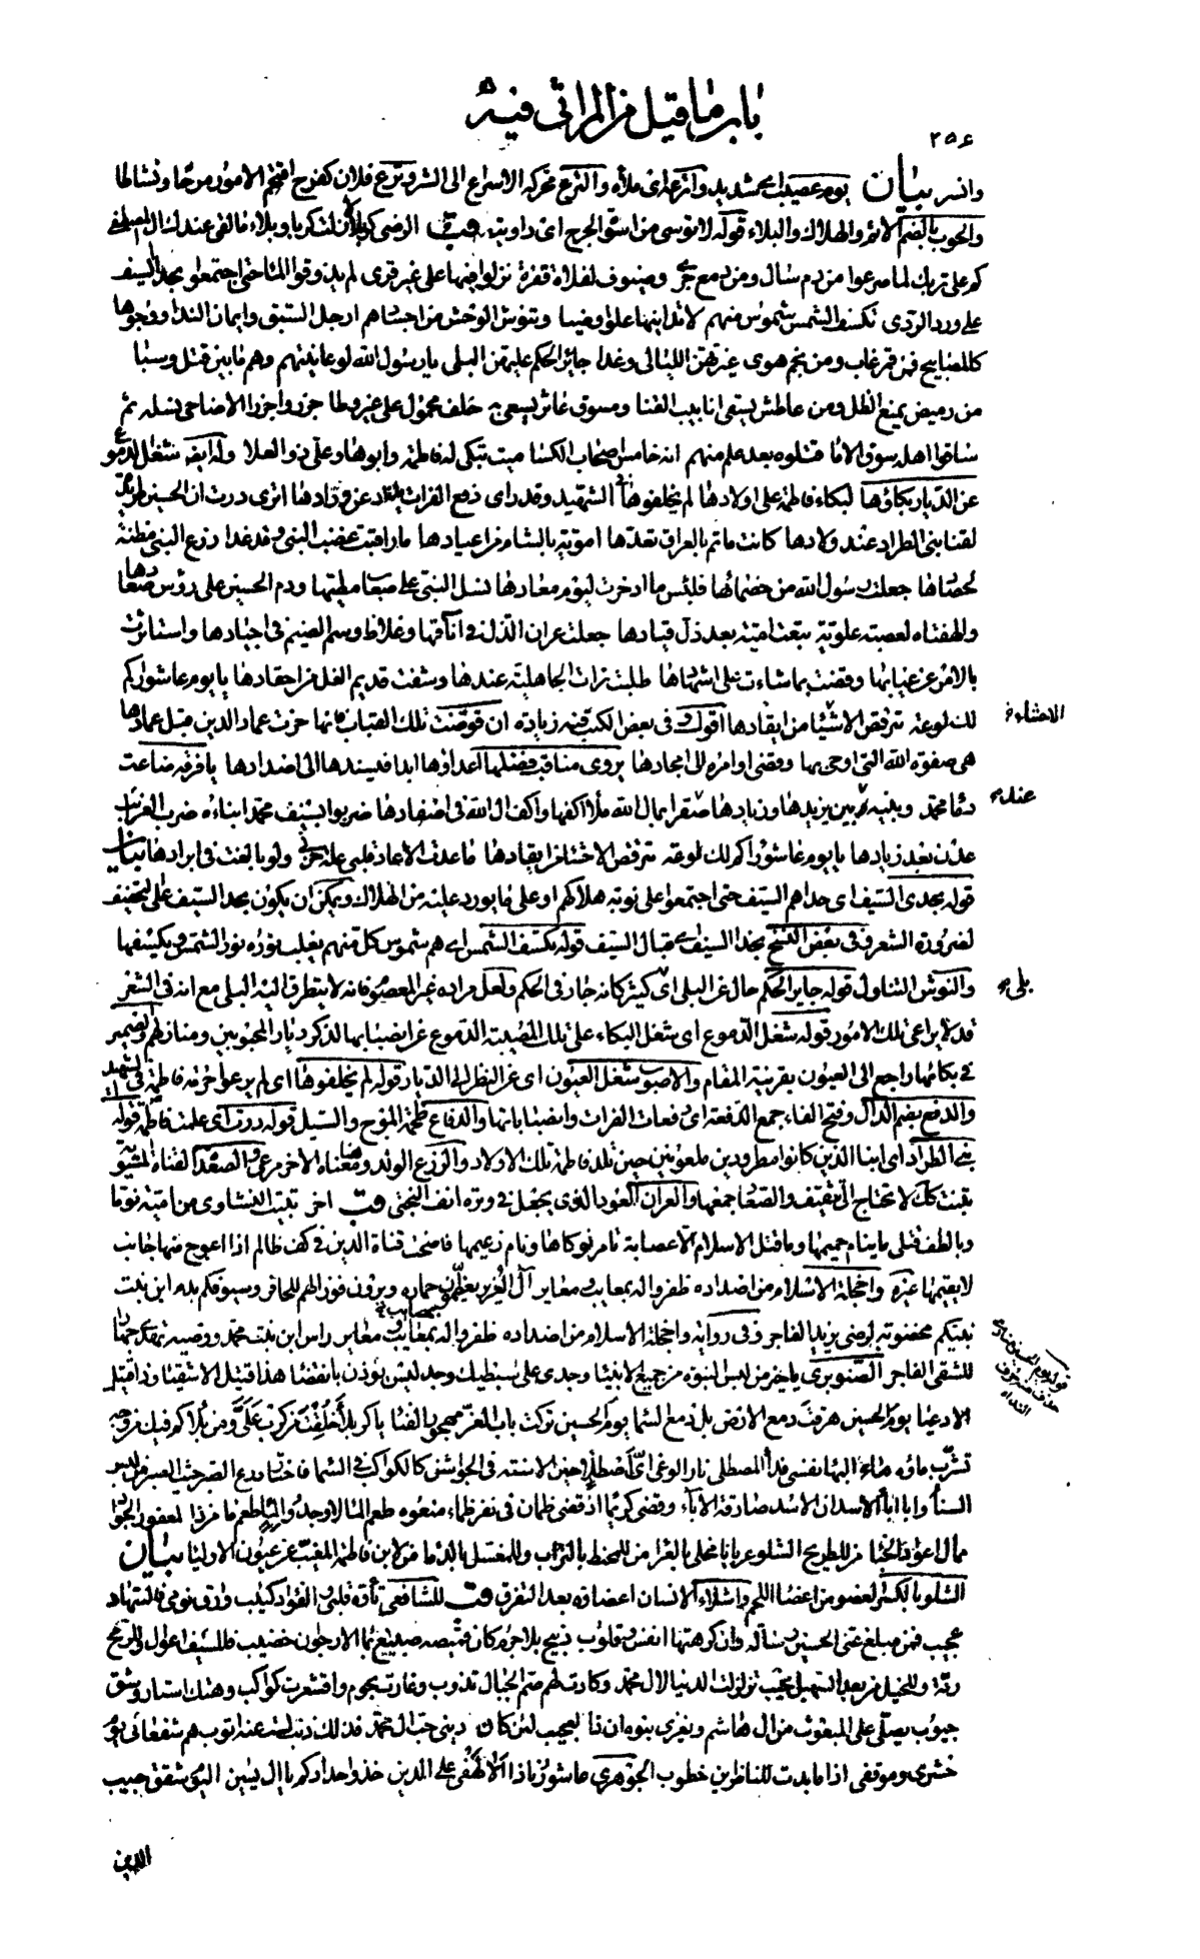 باب ما قيل من المراثي فيه
٢٥٤
وانسر بيان يوم عصيب اي شديد وانزعه اي ملأه والترع محركة الاسراع الى الشر وترع فلان كفرح اقتحم الامور مرحا ونشاطا
والحوب بالضم الاثم والهلاك والبلاء قوله لا توسى من اسو الجرح اى داويته قب الرضى كربلا لا زلت كربا وبلاء ما لقى عندك ال المصطفى
كم على تربك لما صرعوا من دم سال ومن دمع جرى وضيوف لفلاة قفرة نزلوا فيها على غير قرى لم يذوقوا الماء حتى اجتمعوا بحدا السيف
على ورد الردى تكسف الشمس شموس منهم لا تدانيها علوا وضيا وتنوش الوحش من اجسادهم ارجل السبق وايمان الندا ووجوها
كالمصابيح فمن قمر غاب ومن نجم هوى غيرتهن الليالي وغدا جاير الحكم عليهن البلى يا رسول الله لو عاينتهم وهم ما بين قتل وسبا
من رميض يمنع الظل ومن عاطش يسقى انابيب القنا ومسوق عاثر يسعى به خلف محمول على غير وطا جزروا جزر الاضاحي نسله ثم
ساقوا اهله سوق الاما قتلوه بعد علم منهم انه خامس اصحاب الكسا ميت تبكى له فاطمة وابوها وعلى ذو العلا وله ايضا شغل الدموع
عن الديار بكاؤها لبكاء فاطمة على اولادها لم يخلفوها في الشهيد وقد راى دفع الفرات يذاد عن ورادها اترى درت ان الحسين طريدة
لقنا بنى الطراد عند ولادها كانت ماتم بالعراق تعدها اموية بالشام من اعيادها ما راقبت غضب النبي وقد غدا زرع النبي مظنة
لحصادها جعلت رسول الله من خصمائها فلبئس ما ادخرت ليوم معادها نسل النبي على صعاب مطيها ودم الحسين على رؤس صعادها
والهفتاه لعصبة علوية تبعت امية بعد ذل قيادها جعلت عران الذل في انافها وغلاظ وسم الضيم في اجيادها واستاثرت
بالامر عن غيابها وقضت بما شاءت على اشهادها طلبت تراث الجاهلية عندها وشفت قديم الغل من احقادها يا يوم عاشورا كم
لك لوعة تترقص الاحشاء من ايقادها اقول في بعض الكتب فيه زيادة ان قوضت تلك القباب فانما خرت عماد الدين قبل عمادها
هي صفوة الله التي اوحى بها وقضى اوامره الى امجادها يروى مناقب فضلها اعداؤها ابدا فيسندها الى اضدادها يا فرقة ضاعت
دماء محمد وبنيه بين يزيدها وزيادها صفرا بمال الله ملأ اكفها واكف ال الله في اصفادها ضربوا بسيف محمد ابناءه ضرب الغرائب
عدن بعد ذيادها يا يوم عاشورا كم لك لوعة تترقص الاحشاء من ايقادها ما عدت الا عاد قلبي علة حرى ولو بالغت في ابرادها بيان
قوله بحدى السيف اى حداهم السيف حتى اجتمعوا على نوبة هلاكهم او على ما يورد عليه من الهلاك ويمكن ان يكون بحد السيف على التخفيف
لضرورة الشعر وفي بعض النسخ بحذا السيف اى قبال السيف قوله تكسف الشمس اى هم شموس كل منهم يغلب نوره نور الشمس ويكسفها
والنوش التناول قوله جاير الحكم حال عن البلى اى كثيرا كانه جار في الحكم ولعل مراده غير المعصوم فانه لا يتطرق اليه البلى مع انه في الشعر
قد لا يراعى تلك الامور قوله شغل الدموع اى شغل البكاء على تلك المصيبة الدموع عن انصبابها لذكر ديار المحبوبين ومنازلهم والضمير
في بكائها راجع الى العيون بقرينة المقام والاصوب شغل العيون اى عن النظر الى الديار قوله لم يخلفوها اى لم يرعوا حرمة فاطمة في الشهيد
والدفع بضم الدال وفتح الفاء جمع الدفعة اى دفعات الفرات وانصباباتها والدفاع طحمة الموج والسيل قوله درت اى علمت فاطمة قوله
بنى الطراد اى ابنا الذين كانوا مطرودين ملعونين حين تلد فاطمة تلك الاولاد والزرع الولد ومعناه الاخر مرعى هنا والصعدة القناة المستوية
تنبت كذلك لا تحتاج الى تثقيف والصعاد جمعها والعران العود الذي يجعل في وترة انف البختي قب اخر تبيت النشاوى من امية نوما
وبالطف قتلى ما ينام حميمها وما قتل الاسلام الا عصابة تامر نوكاها ونام زعيمها فاضحت قناة الدين في كف ظالم اذا اعوج منها جانب
لا يقيمها غيره واخجلة الاسلام من اضداده ظفروا له بمعايب ومعاير آل العزير يعظمون حماره ويرون فوزا لثمهم للحافر وسيوفكم بدم ابن بنت
نبيكم مخضوبة لرضى يزيد الفاجر وفي رواية واخجلة الاسلام من اضداده ظفروا له بمعايب ومعاير راس ابن بنت محمد ووصيه
للشقى الفاجر الصنوبري يا خير من لبس النبوة من جميع الانبيا وجدى على سبطيك وجد ليس يؤذن بانقضا هذا قتيل الاشقيا وذا قتيل
الادعيا يوم الحسين هرقت دمع الارض بل دمع السما يوم الحسين تركت باب العز مهجور الفنا يا كربلا خلقت من كرب على ومن بلا كم فيك من وجه
تشرب ماؤه ماء البها نفسى فداء المصطلى نار الوغى اى اصطلا حيث الاسنة في الجواشن كالكواكب في السما فاختار درع الصبر حيث الصبر من لبس
السنا وابا اباء الاسد ان الاسد صادقة الاباء وقضى كريما اذ قضى ظمان في نفر ظماء منعوه طعم الماء لا وجدوا لماء طعم ماء من ذا لمعفور الجواد
ممال اعواد الخبا من للطريح الشلو عريانا مخلى بالعرا من للمحنط بالتراب وللمغسل بالدما من لابن فاطمة المغيب عن عيون الاوليا بيان
الشلو بالكسر العضو من اعضاء اللحم واشلاء الانسان اعضاؤه بعد التفرق قب للشافعي تأوه قلبي والفؤاد كئيب وارق نومى فالسهاد
عجيب فمن مبلغ عنى الحسين رسالة وان كرهتها انفس وقلوب ذبيح بلا جرم كان قميصه صبيغ بماء الارجوان خضيب فللسيف اعوال وللرمح
رنة وللخيل من بعد الصهيل نحيب تزلزلت الدنيا لال محمد وكادت لهم صم الجبال تذوب وغارت نجوم واقشعرت كواكب وهتك استار وشق
جيوب يصلى على المبعوث من ال هاشم ويغزى بنوه ان ذا لعجيب لئن كان ذنبي حب ال محمد فذلك ذنب لست عنه اتوب هم شفعائي يوم
حشرى وموقفى اذا ما بدت للناظرين خطوب الجوهري عاشورنا ذا الا لهفى على الدين خذوا حدادكم يا ال ياسين اليوم شقق جيب
الدين
الاحشاء
عنده
بلى